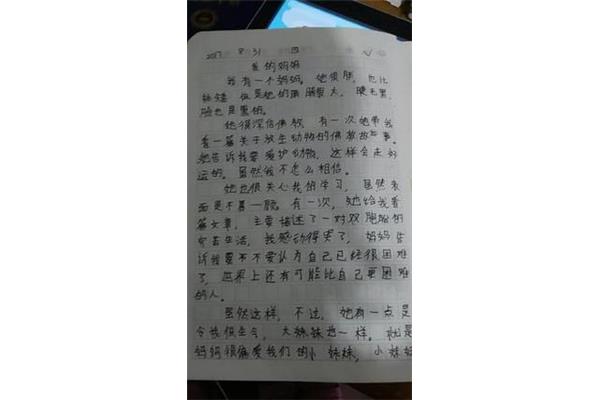 2017 8 31 四
我的妈妈
我有一个妈妈。她很胖，也比
较矮 但是她的眼睛很大，睫毛黑，
脸也是黑的。
她很深信佛教 有一次她带我
看一篇关于放生动物的佛教故事。
她告诉我要爱护动物，这样会走好
运的。虽然我不怎么相信。
她也很关心我的学习，虽然表
面是不喜一顾。有一次，她给我看
篇文章，主要描述了一对双胞胎的
穷苦生活，我感动得哭了，妈妈告
诉我要不不要认为自己已经很困难
了，世界上还有可能比自己更困难
的人。
虽然这样，不过，她有一点是
令我很生气，大妹妹也一样。就是
妈妈很偏爱我们的小妹妹，小妹妹